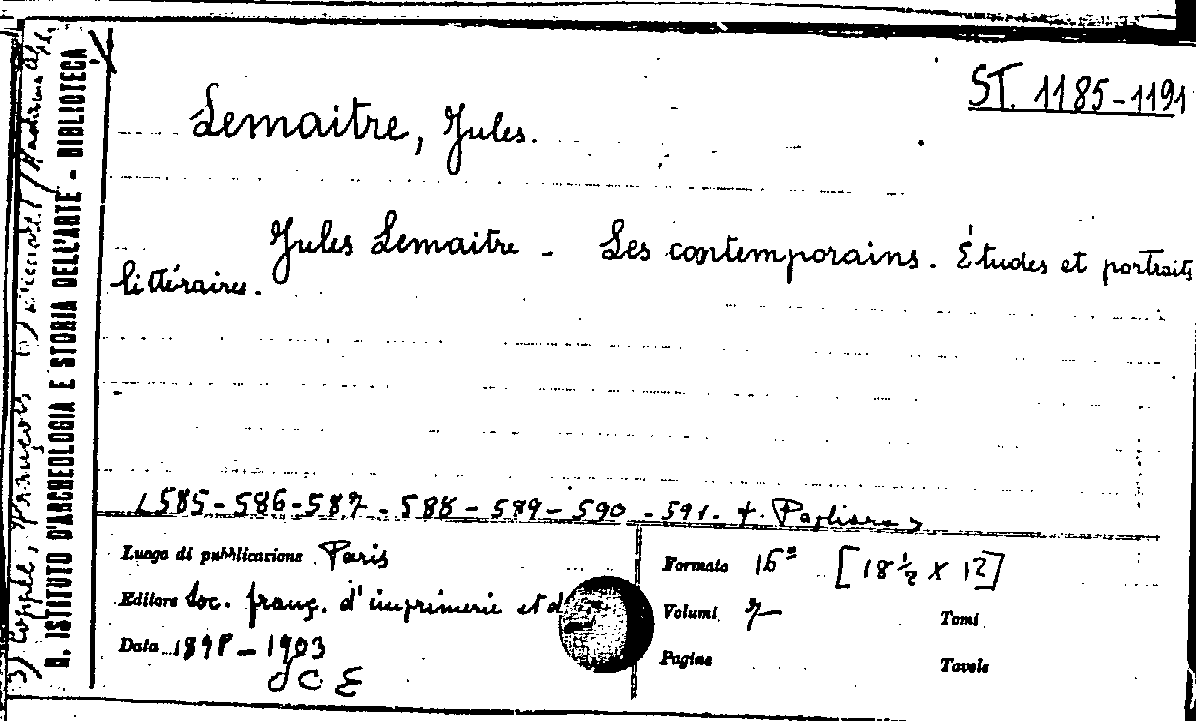 ST. 1185-1191
Lemaitre, Jules.
Jules Lemaitre - Les contemporains. Études et portraits
littéraires.
585-586-587-588-589-590-591. f. Pagliara
Luogo di pubblicazione Paris
Editore Soc. franç. d'imprimerie et d
Data 1898-1903
Formato 16° [18 ½ x 12]
Volumi 7
Tomi
Pagine
Tavole
R. ISTITUTO D'ARCHEOLOGIA E STORIA DELL'ARTE - BIBLIOTECA
3) Coppée, François